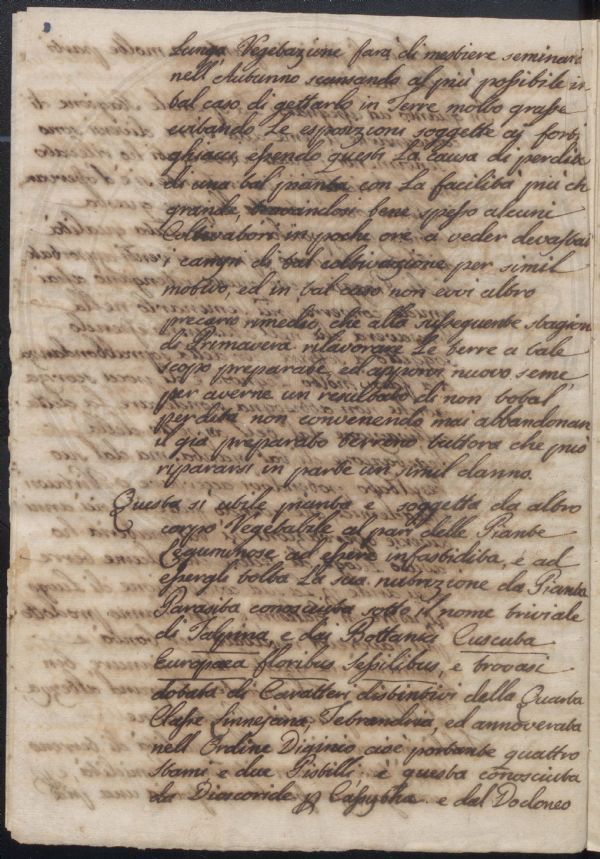 Lunga Vegetazione farà di mestiere seminari
nell' Autunno scansando al più possibile in
tal caso di gettarlo in Terre molto grasse
evitando le esposizioni soggette aj forti
ghiacci, essendo questi La causa di perdita
di una tal pianta con La facilità più ch
grande, trovandosi bene spesso alcuni
Coltivatori in poche ore a veder devastai
i campi di tal coltivazione per simil
motivo, ed in tal caso non evvi altro
precario rimedio, che alla susseguente stagion
di Primavera rilavorare Le terre a tale
scopo preparate, ed apporvi nuovo seme
per averne un resultato di non total'
perdita non convenendo mai abbandonan
il già preparato terreno tuttora che può
ripararsi in parte un simil danno.
Questa sì utile pianta e soggetta da altro
corpo Vegetabile al pari delle Piante
Leguminose ad essere infastidita, e ad
essergli tolta La sua nutrizione da Pianta
Parasita conosciuta sotto il nome triviale
di Talpina, e dai Bottanici Cuscuta
Europaea floribus Sessilibus, e trovasi
dotata di Caratteri distintivi della Quarta
Classe Linnejana, Tetrandria, ed annoverata
nell' Ordine Diginio cioè portante quattro
stami e due Pistilli: è questa conosciuta
da Dioscoride p Cassytha e dal Dodoneo